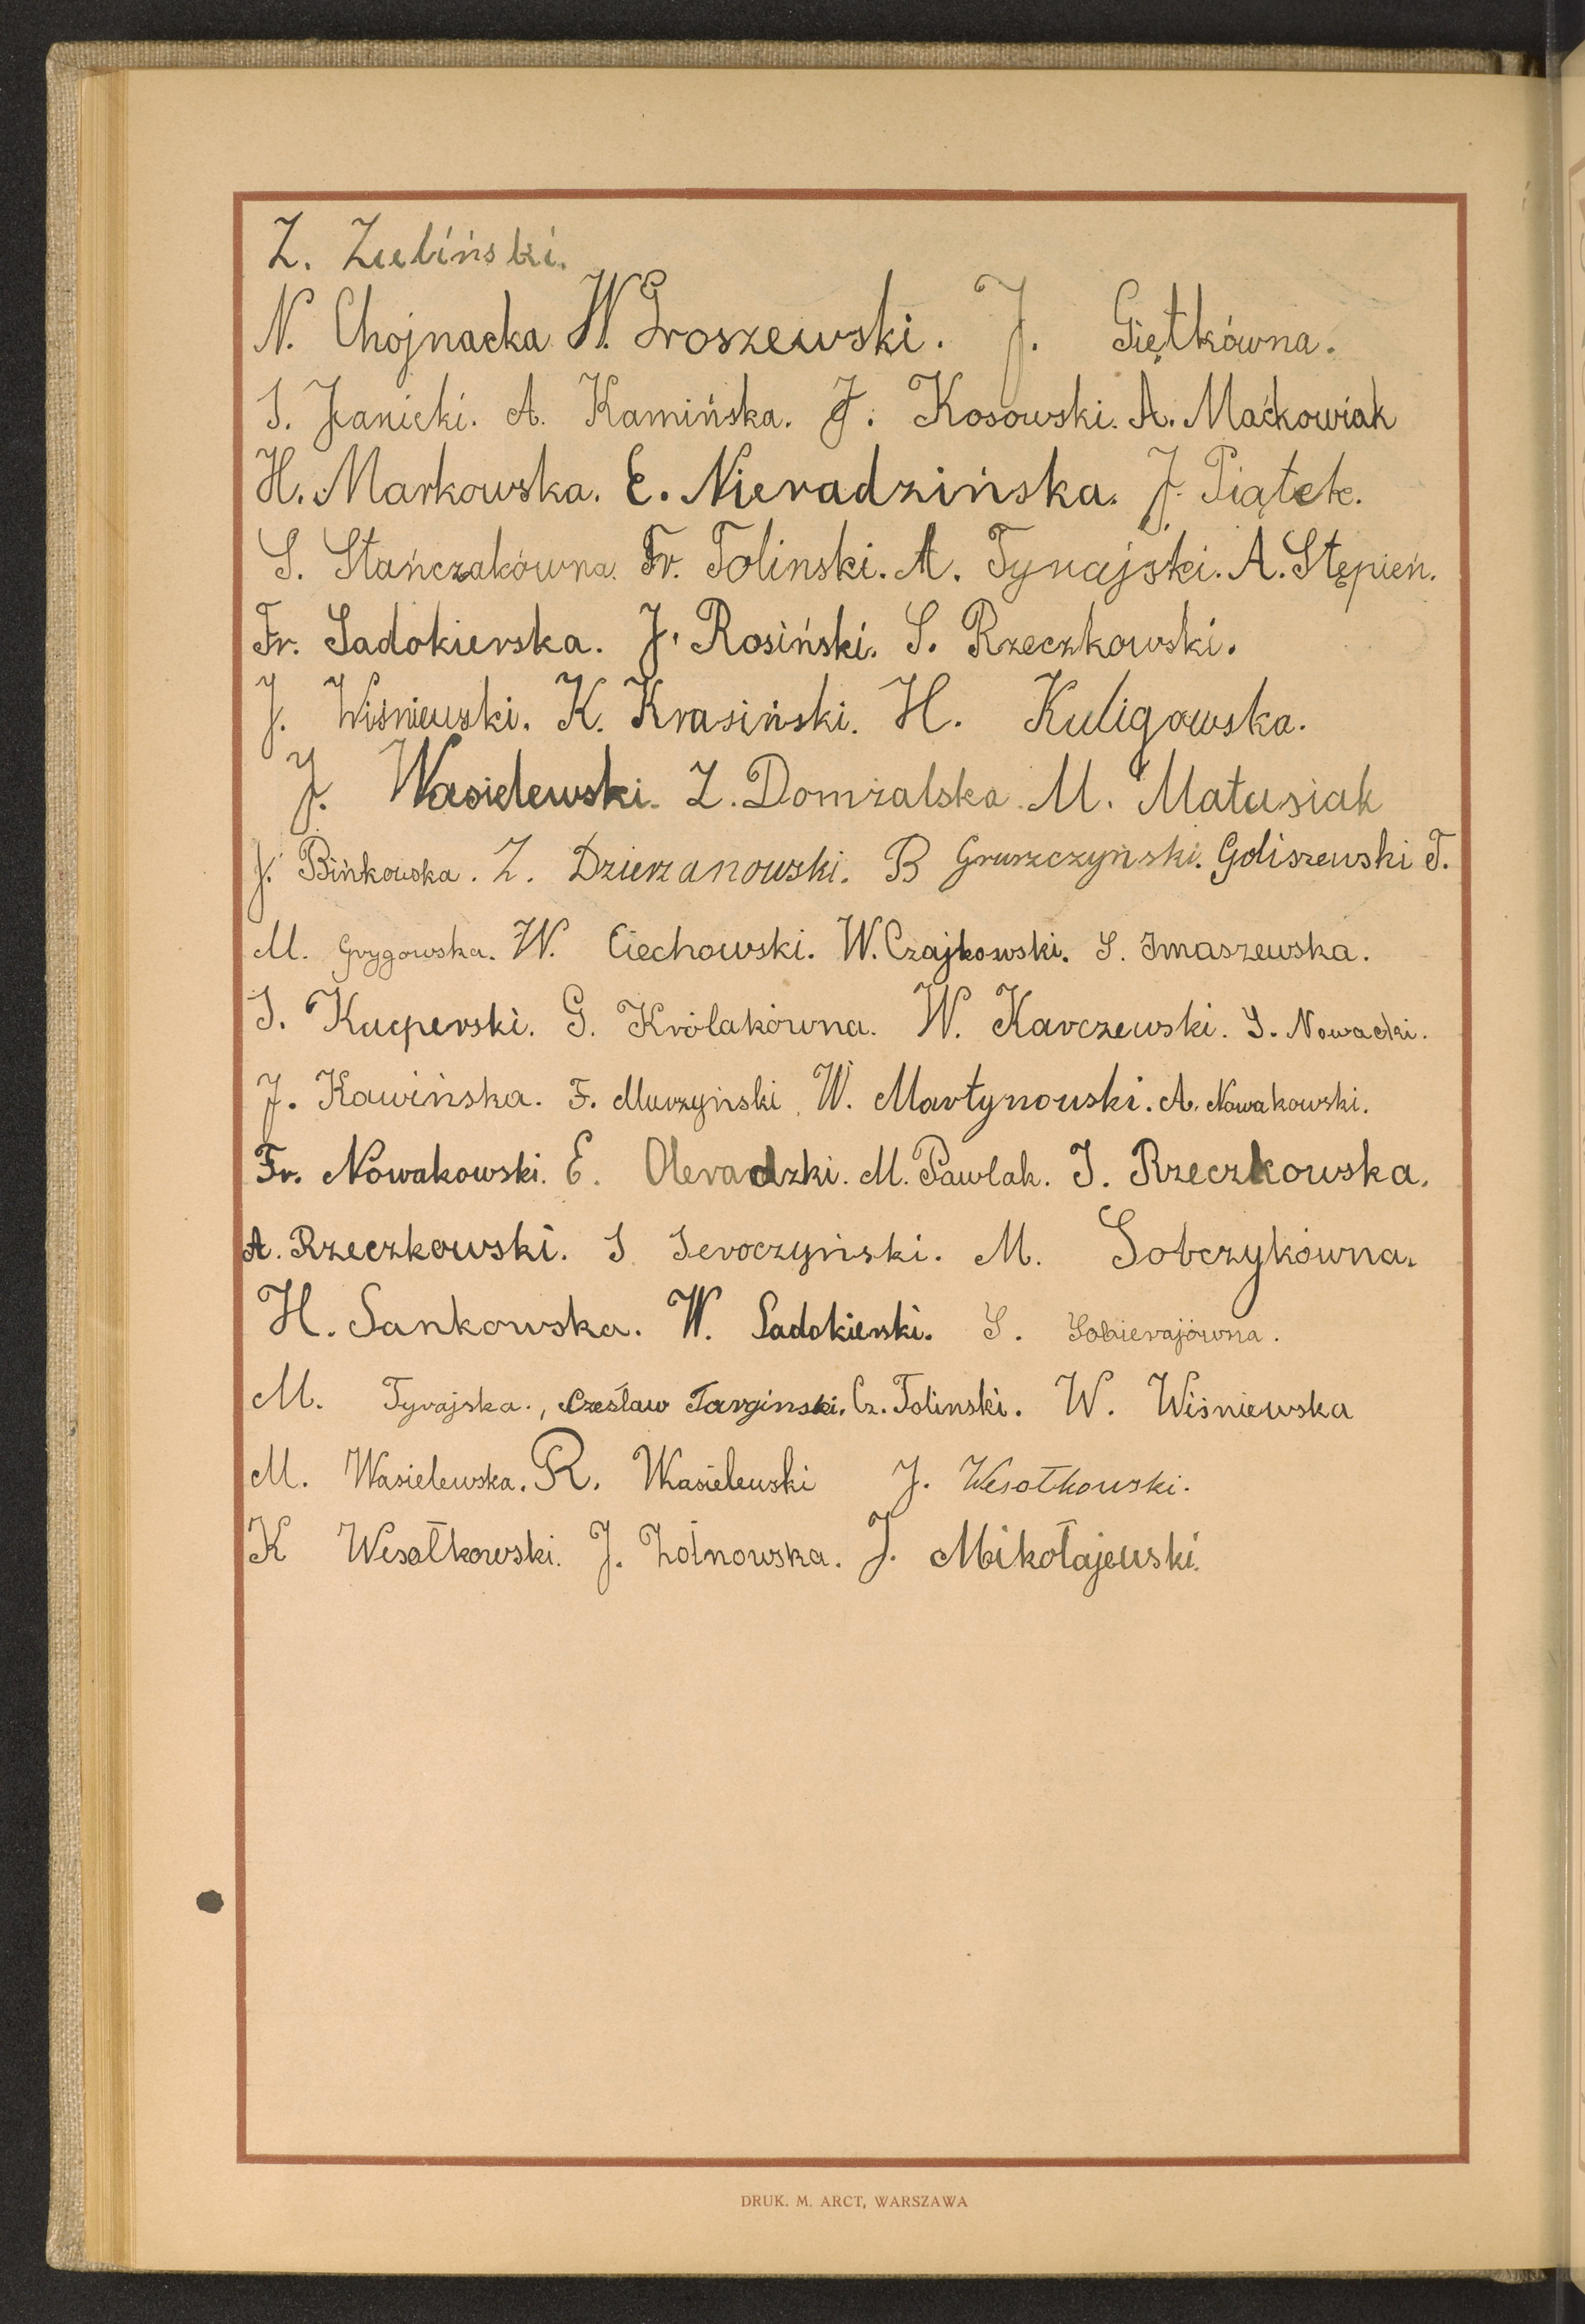 Z. Zieliński.
N. Chojnacka W. Groszewski. J. Giętkówna.
S. Janicki. A. Kamińska. J. Kosowski. A. Maćkowiak
H. Markowska. E. Nieradzińska. J. Piątek.
S. Stańczakówna. Fr. Tolinski. A. Tyrajski. A. Stępień.
Fr. Sadokierska. J. Rosiński. S. Rzeczkowski.
J. Wiśniewski. K. Krasiński. H. Kuligowska.
J. Wasielewski. Z. Domżalska. M. Matusiak
J. Bińkowska. Z. Dzierżanowski. B Gruszczyński. Goliszewski T.
M. Grygowska. W. Ciechowski. W. Czajkowski. S. Imaszewska.
S. Kacperski. G. Królakówna. W. Karczewski. S. Nowacki.
J. Kawińska. F. Murzyński W. Martynowski. A. Nowakowski.
Fr. Nowakowski. E. Oleradzki. M. Pawlak. J. Rzeczkowska.
A. Rzeczkowski. S Seroczyński. M. Sobczykówna.
H. Sankowska. W. Sadokierski. S. Sobierajówna.
M. Tyrajska., Czesław Targinski. Cz. Tolinski. W. Wiśniewska
M. Wasielewska. R. Wasielewski J. Wesołkowski.
K Wesołkowski. J. Żółnowska. J. Mikołajewski.
DRUK. M. ARCT, WARSZAWA